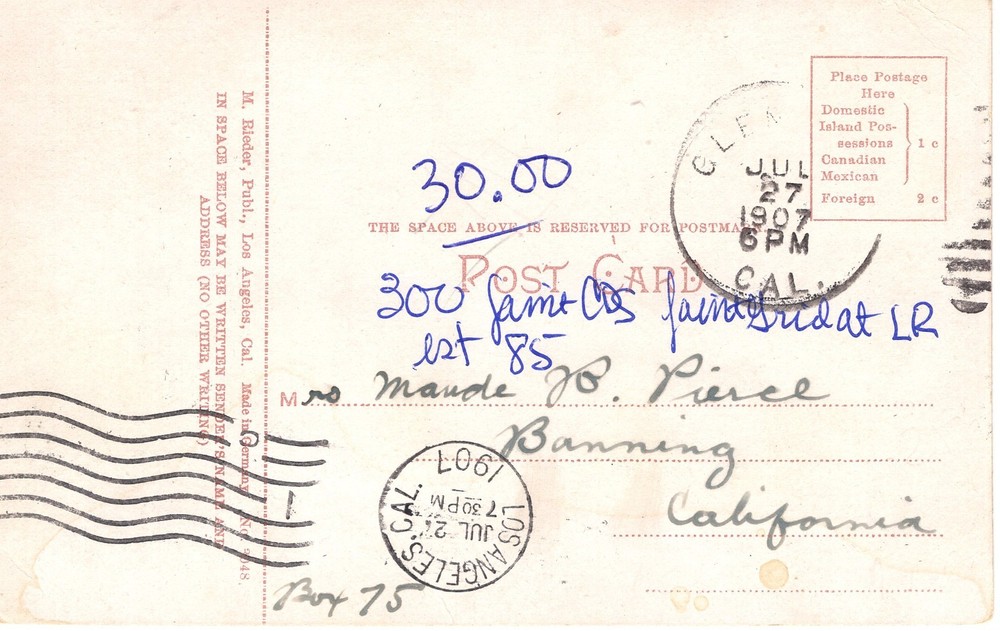 M. Rieder, Publ., Los Angeles, Cal. Made in Germany. No.
IN SPACE BELOW MAY BE WRITTEN SENDER'S NAME AND
ADDRESS (NO OTHER WRITING)
Place Postage
Here
Domestic
Island Pos-
sessions
Canadian
Mexican
1 c
Foreign 2 c
JUL
27
1907
6 PM
CAL.
30.00
THE SPACE ABOVE IS RESERVED FOR POSTMARK
POST CARD
300 faint CDS faint grid at LR
est 85
Mrs Maude B. Pierce
Banning
California
LOS ANGELES, CAL.
JUL 27
7 30 PM
1907
Box 75